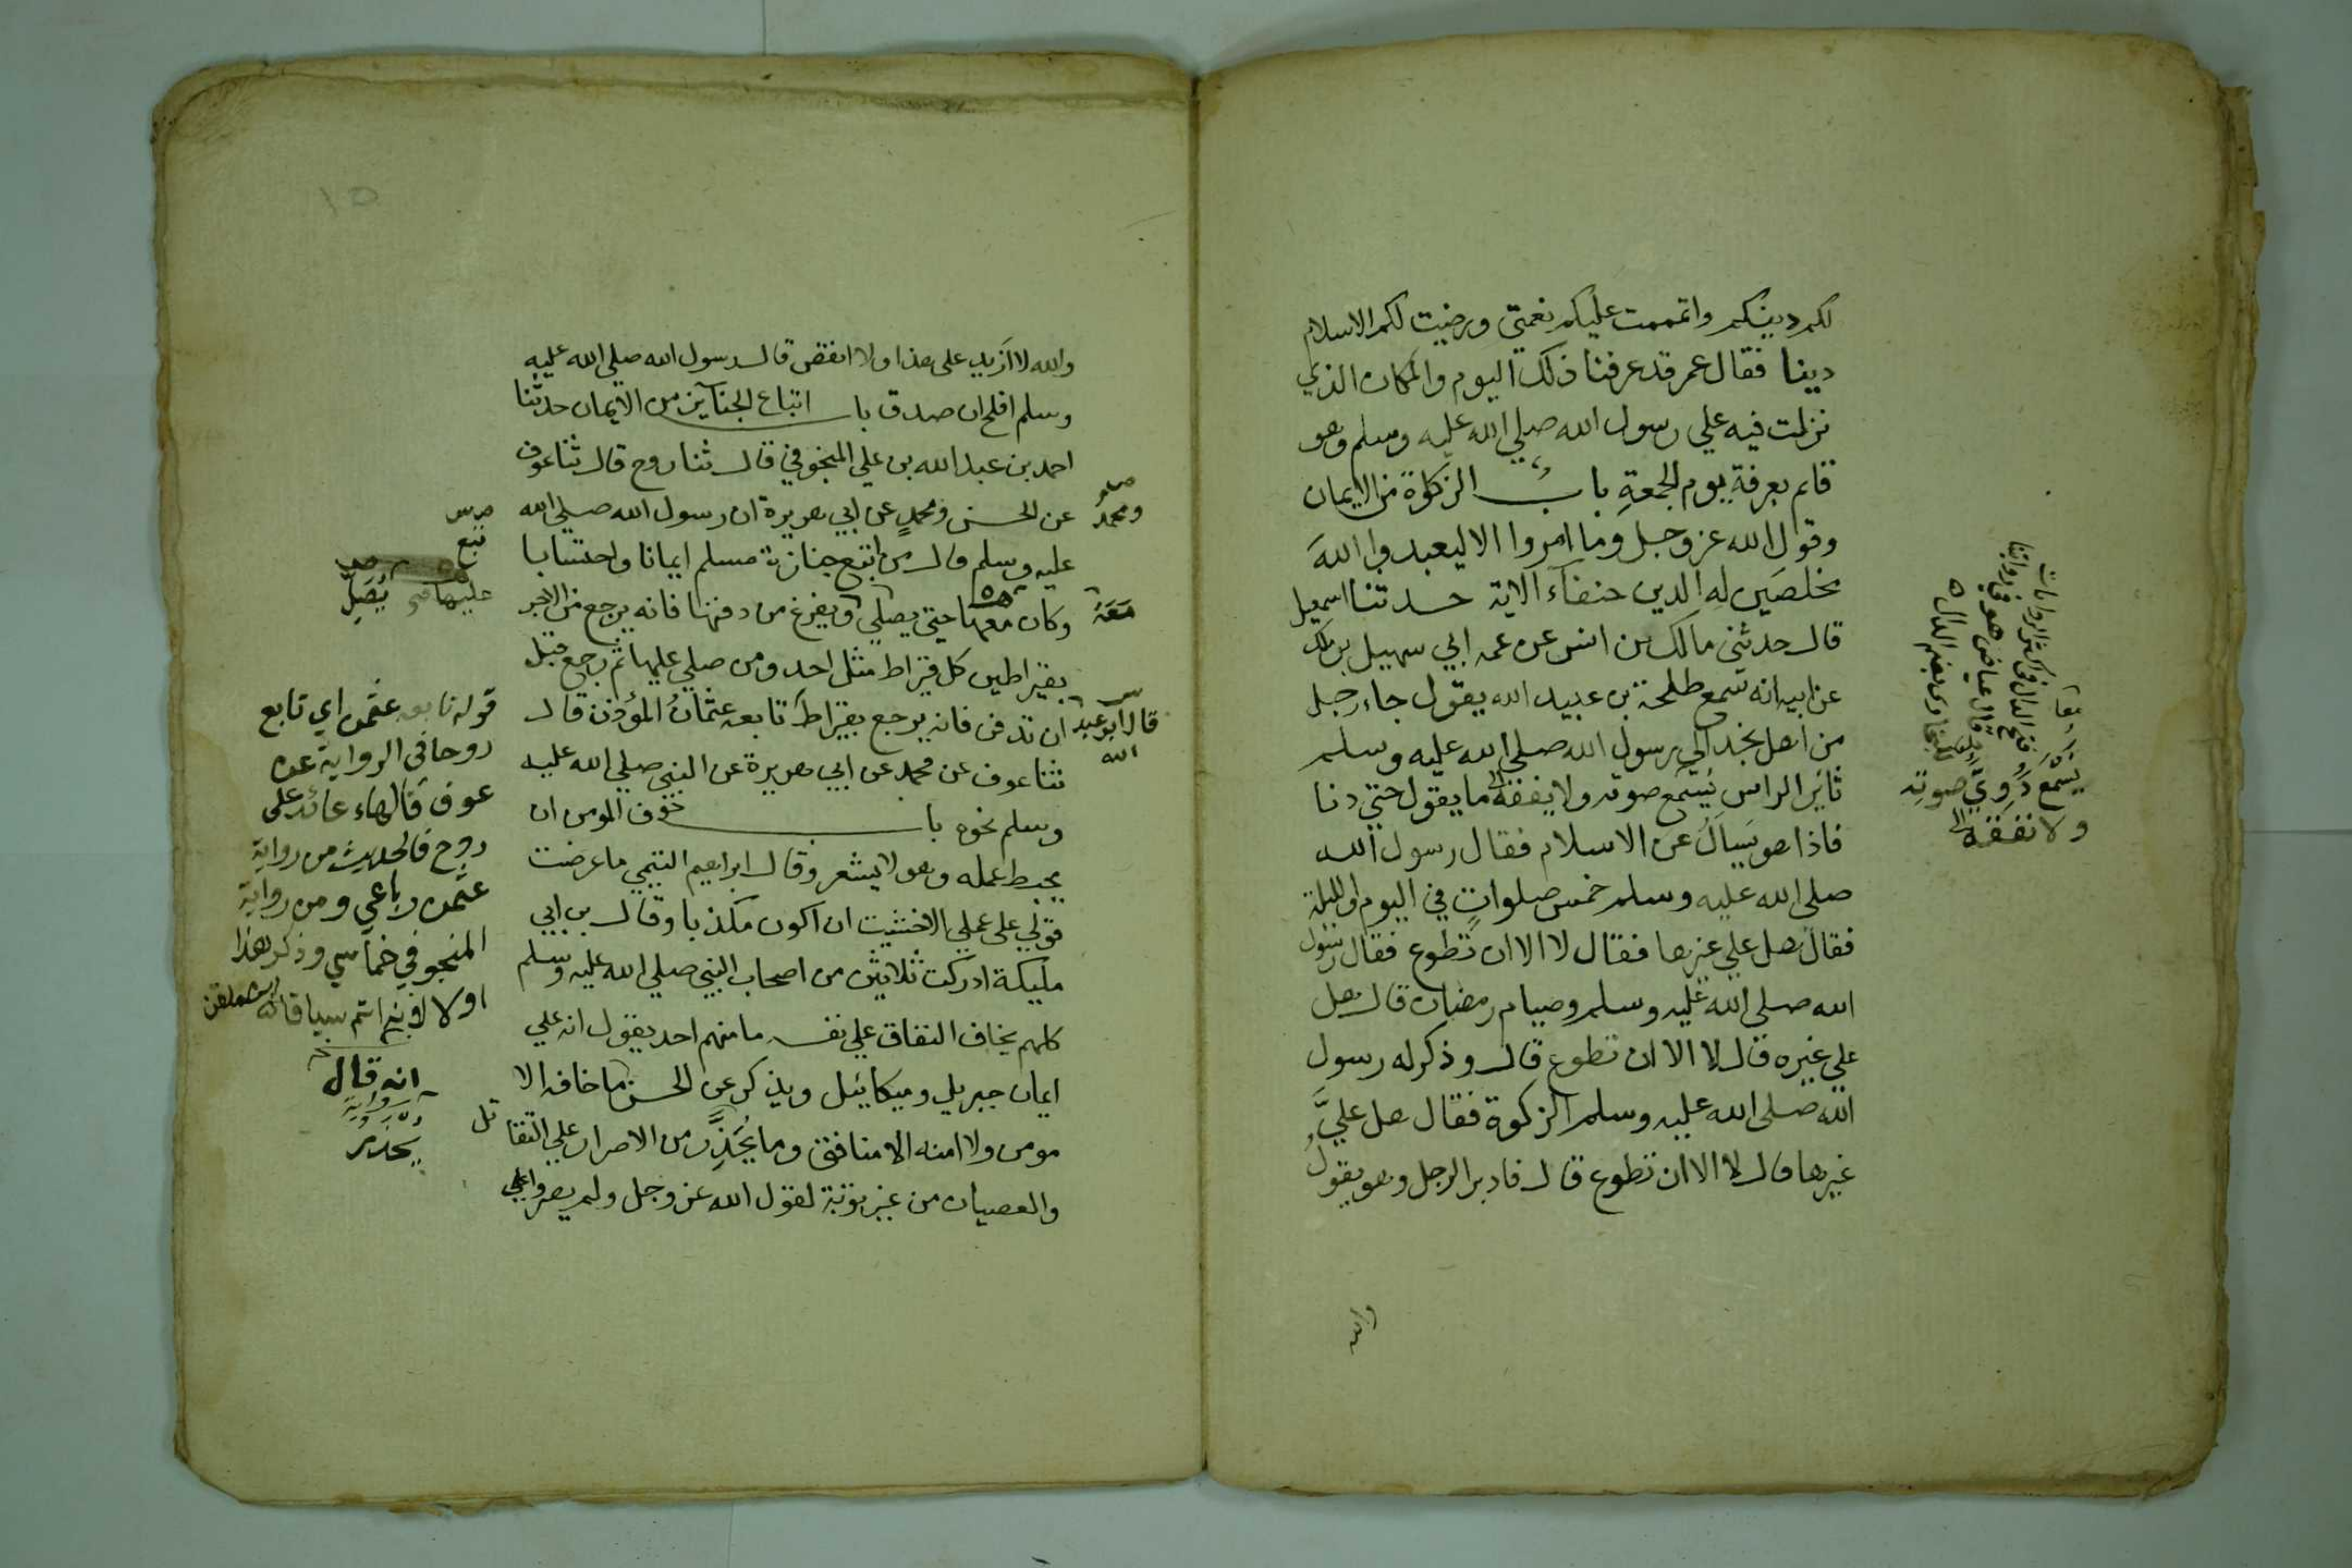 لكم دينكم واتممت عليكم نعمتي ورضيت لكم الاسلام
دينا فقال عمر قد عرفنا ذلك اليوم والمكان الذي
نزلت فيه علي رسول الله صلي الله عليه وسلم وهو
قايم بعرفة يوم الجمعةِ بابُ الزكوة من الايمان
وقول الله عز وجل وما امروا الا ليعبدوا اللهَ
مخلصين له الدين حنفآء الاية حدثنا اسمعيل
قال حدثني مالك بن انس عن عمه ابي سهيل بن ملك
عن ابيه انه سمع طلحة بن عبيد الله يقول جاء رجل
من اهل نجد الي رسول الله صلي الله عليه وسلم
ثائر الراس يُسمع صوته ولا يفقه ما يقول حتي دنا
فاذا هو يَسالُ عن الاسلام فقال رسول الله
صلي الله عليه وسلم خمس صلواتٍ في اليوم والليلة
فقال هل علي غيرها فقال لا الا ان تطوع فقال رسول
الله صلي الله عليه وسلم وصيام رمضان قال هل
علي غيره قال لا الا ان تطوع قال وذكر له رسول
الله صلي الله عليه وسلم الزكوة فقال هل عليَّ
غيرها قال لا الا ان تطوع قال فادبر الرجل وهو يقولُ
والله
يُسْمَعُ دَوِيّ صوتِه
ولا نفقه
والله لا ازيد على هذا ولا انقص قال رسول الله صلي الله عليه
وسلم افلح ان صدق باب اتباع الجنآيز من الايمان حدثنا
احمد بن عبد الله بن علي المنجوفي قال ثنا روح قال ثنا عوف
عن الحسن ومحمدٍ عن ابي هريرة ان رسول الله صلي الله
عليه وسلم قال من اتبع جنازة مسلم ايمانا واحتسابا
وكان معها حتي يصلي ويفرغ من دفنها فانه يرجع من الاجر
بقيراطين كل قيراط مثل احد ومن صلي عليها ثم رجع قبل
ان تدفن فانه يرجع بقيراط تابعه عثمانُ المؤذن قال
ثنا عوف عن محمد عن ابي هريرة عن النبي صلي الله عليه
وسلم نحوه باب خوف المومن ان
يحبط عمله وهو لا يشعر وقال ابراهيم التيمي ما عرضت
قولي علي عملي الا خشيت ان اكون مكذبا وقال بن ابي
مليكة ادركت ثلاثين من اصحاب النبي صلي الله عليه وسلم
كلهم يخاف النفاق علي نفسه ما منهم احد يقول انه علي
ايمان جبريل وميكائيل ويذكر عن الحسن ما خافه الا
مومن ولا امنه الا منافق وما يُحَذَّر من الاصرار علي التقا
تل
والعصيان من غير توبة لقول الله عز وجل ولم يصروا علي
ومحمدٌ
مَعَهُ
قال ابو عبد
الله
تبع
عليها
يُصَلِّ
قوله تابعه عثمن اي تابع
روحا في الرواية عن
عوف فالهاء عائد على
روح فالحديث من رواية
عثمن رباعي ومن رواية
المنجوفي خماسي وذكر هذا
اولا لانه اتم سياقا
انه قال